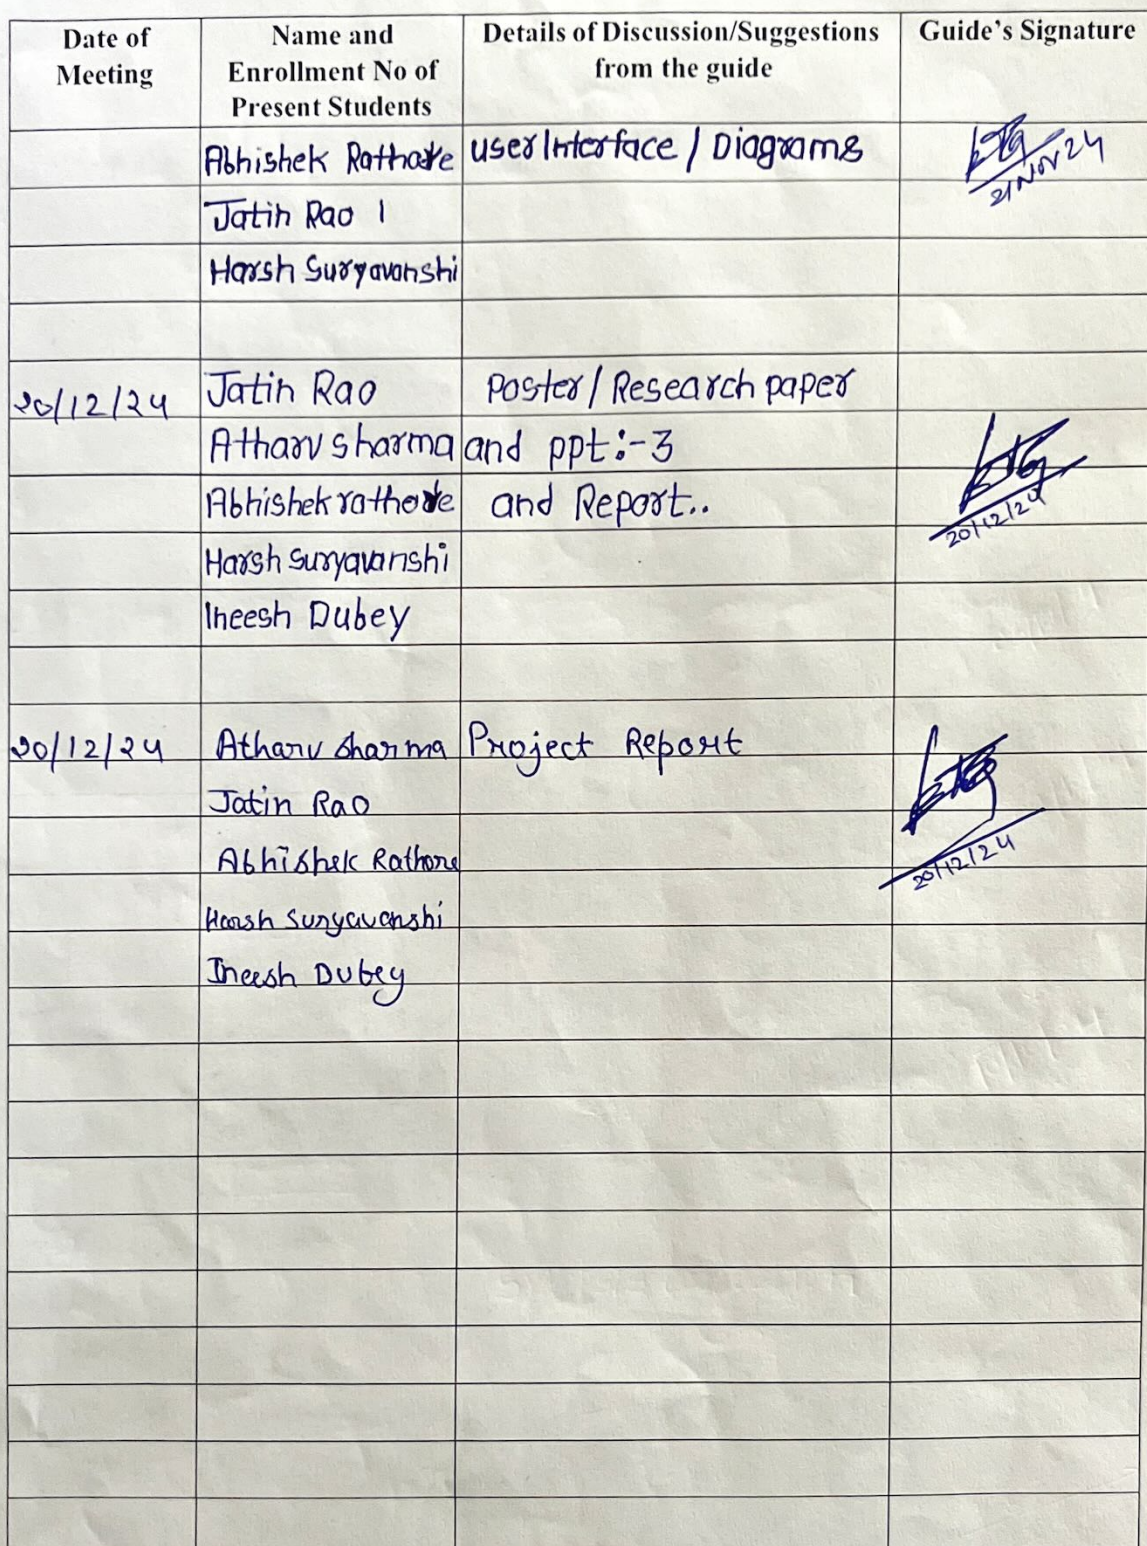 Date of Meeting | Name and Enrollment No of Present Students | Details of Discussion/Suggestions from the guide | Guide's Signature
Abhishek Rathore | user Interface / Diagrams | 21 Nov 24
Jatin Rao 1
Harsh Suryavanshi
20/12/24 | Jatin Rao | Poster / Research paper
Atharv sharma | and ppt:-3
Abhishek rathore | and Report.. | 20/12/24
Harsh Suryavanshi
Ineesh Dubey
20/12/24 | Atharv sharma | Project Report
Jatin Rao
Abhishek Rathore | 20/12/24
Harsh Suryavanshi
Ineesh Dubey